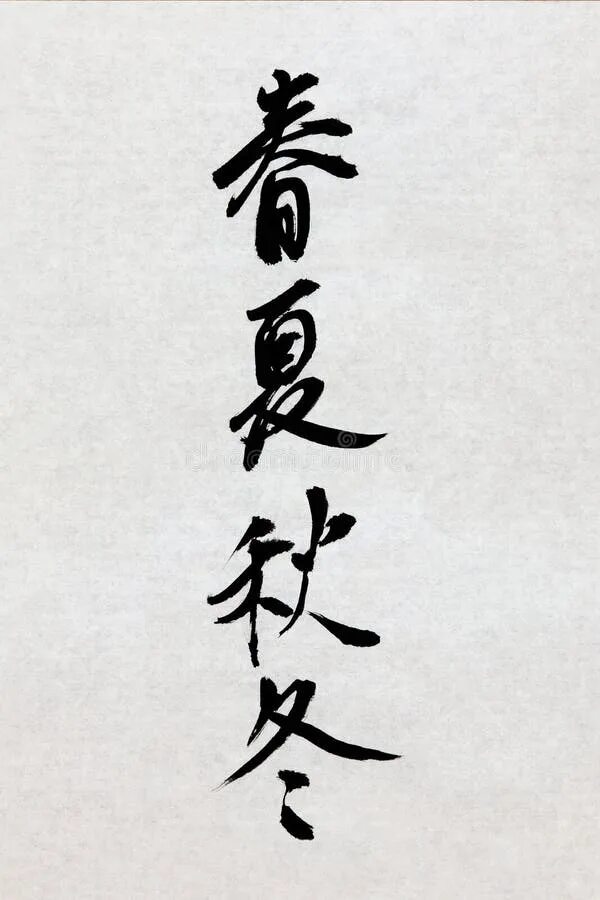 春夏秋冬
dreamstime